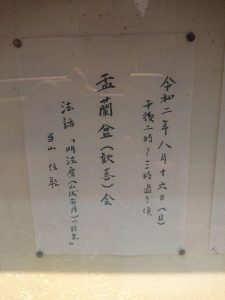 令和二年八月十六日(日)
午後二時〜三時過ぎ頃
盂蘭盆(歓喜)会
法話「明法房(山伏弁円)の往生」
当山 住職